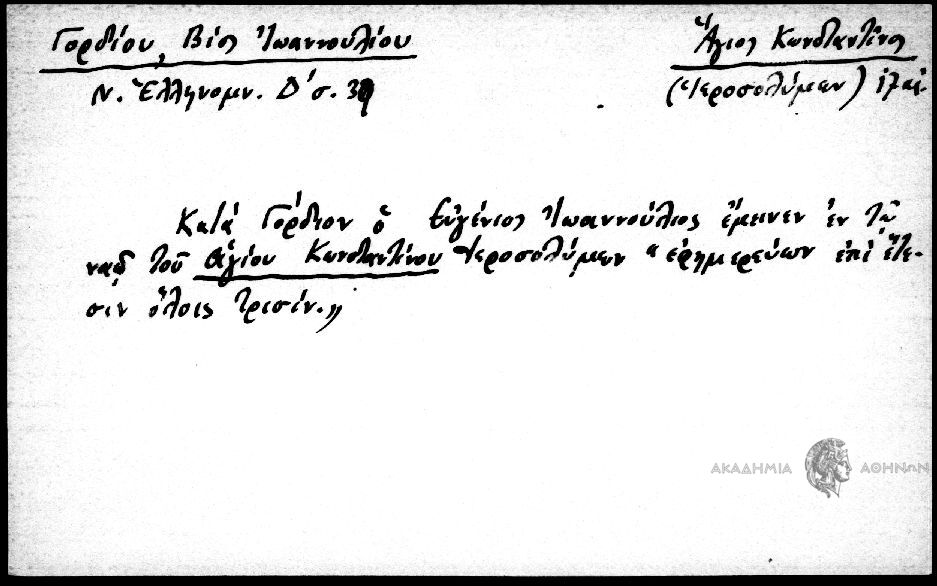 Γορδίου, Βίος Ἰωαννουλίου
Ἅγιος Κωνσταντῖνος
Ν. Ἑλληνομν. Δ' σ. 39
(Ἱεροσολύμων)
Κατά Γόρδιον ὁ Εὐγένιος Ἰωαννούλιος ἔμεινεν ἐν τῷ
ναῷ τοῦ Ἁγίου Κωνσταντίνου Ἱεροσολύμων "ἐφημερεύων ἐπί ἔτε-
σιν ὅλοις τρισίν."
ΑΚΑΔΗΜΙΑ ΑΘΗΝΩΝ